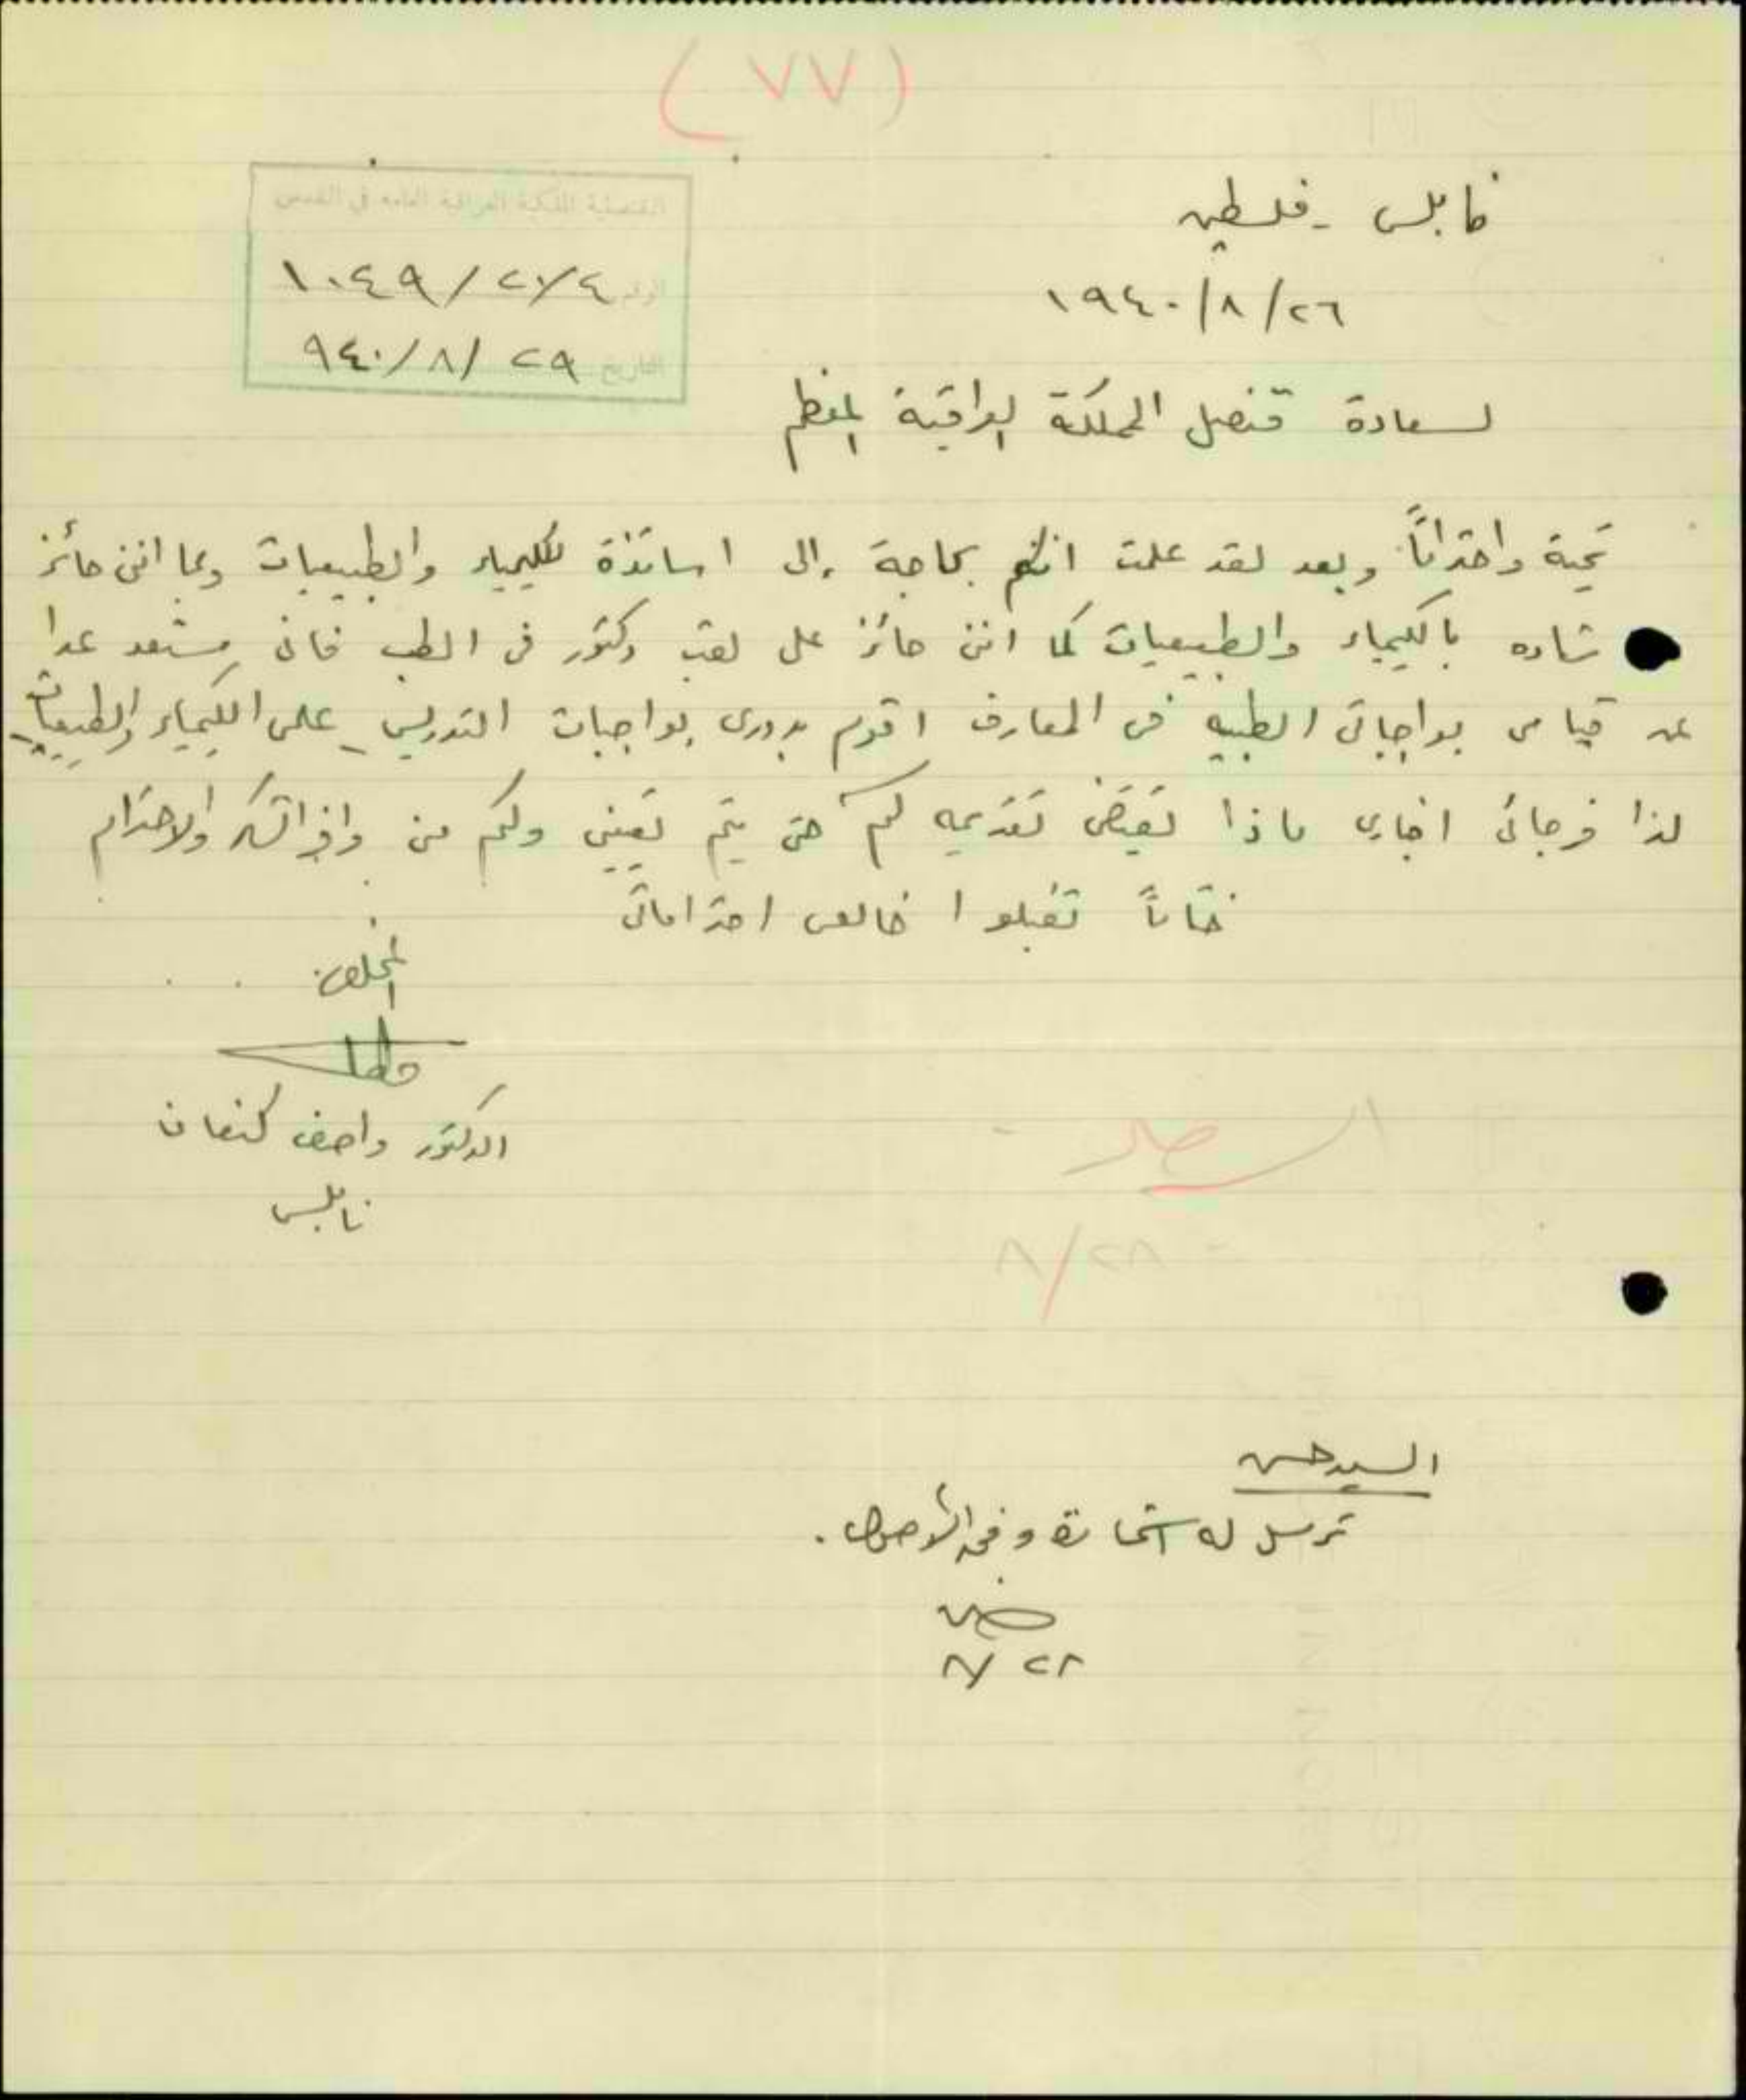 (٧٧)
القنصلية الملكية العراقية العامة في القدس
الرقم ١٠٤٩/٢٧/٤
التاريخ ٢٩/٨/٩٤٠
نابلس - فلسطين
٢٦/٨/١٩٤٠
لسعادة قنصل المملكة العراقية المعظم
تحية واحتراماً وبعد لقد علمت انكم بحاجة إلى اساتذة للكيمياء والطبيعيات وبما انني حائز
شهاده بالكيمياء والطبيعيات كما انني حائز على لقب دكتور في الطب فاني مستعد عدا
عن قيامي بواجباتي الطبيه في المعارف اقوم بدوري بواجبات التدريس على الكيمياء والطبيعيات
لذا فرجائي اخباري ماذا يقتضي تقديمه لكم حتى يتم تعييني ولكم مني وافر الشكر والاحترام
ختاماً تقبلوا خالص احتراماتي
المخلص
الدكتور واصف كنعان
نابلس
٢٨/٨
السيد حسن
ترسل له استمارة وفق الأصول.
٢٨/٨